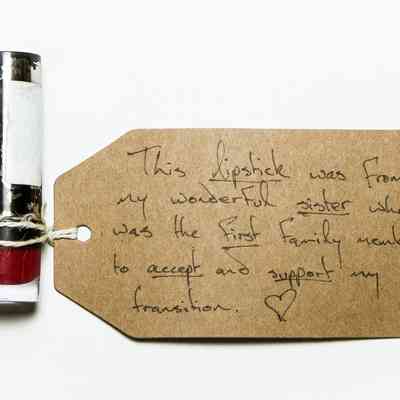 This lipstick was from
my wonderful sister who
was the first family
to accept and support my
transition.